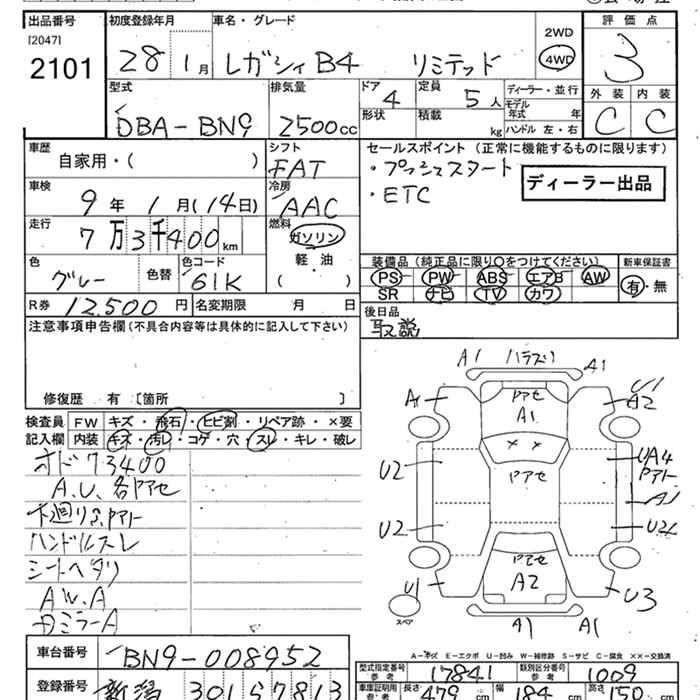 出品番号 初度登録年月 車名・グレード 評価点
[2047]
2101 28 1月 レガシィB4 リミテッド 2WD 4WD 3
型式 排気量 ドア 4 定員 5人 ディーラー・並行 外装 内装
DBA-BN9 2500cc 形状 積載 kg モデル年式 年 ハンドル 左・右 C C
車歴 シフト セールスポイント(正常に機能するものに限ります)
自家用・( ) FAT ・プッシュスタート
車検 冷房 ・ETC ディーラー出品
9年 1月(14日) AAC
走行 燃料
7万3千400km ガソリン
軽油
( )
装備品(純正品に限り○をつけてください) 新車保証書
色 色替 色コード PS PW ABS エアB AW 有・無
グレー 61K SR ナビ TV カワ
R券 12,500円 名変期限 月 日 後日品
取説
注意事項申告欄(不具合内容等は具体的に記入して下さい)
修復歴 有 〔箇所 〕
検査員 FW キズ・飛石・ヒビ割・リペア跡・×要
記入欄 内装 キズ・汚レ・コゲ・穴・スレ・キレ・破レ
オド73400
A.U、各アセ
下廻り
ハンドルスレ
シートヘタリ
AW.A
ミラーA
A1 A1
A1 アセ U1
A1 A2
U2 アセ UA4
A1
U2 U2
U1 アセ U3
A2
スペア A1 A1
A-キズ E-エクボ U-凹み W-補修跡 S-サビ C-腐食 ××-交換済
車台番号 BN9-008952 型式指定番号 参考 17841 類別区分番号 参考 1009
登録番号 新潟 301 車庫証明用 参考 長さ 479 cm 幅 184 cm 高さ 150 cm